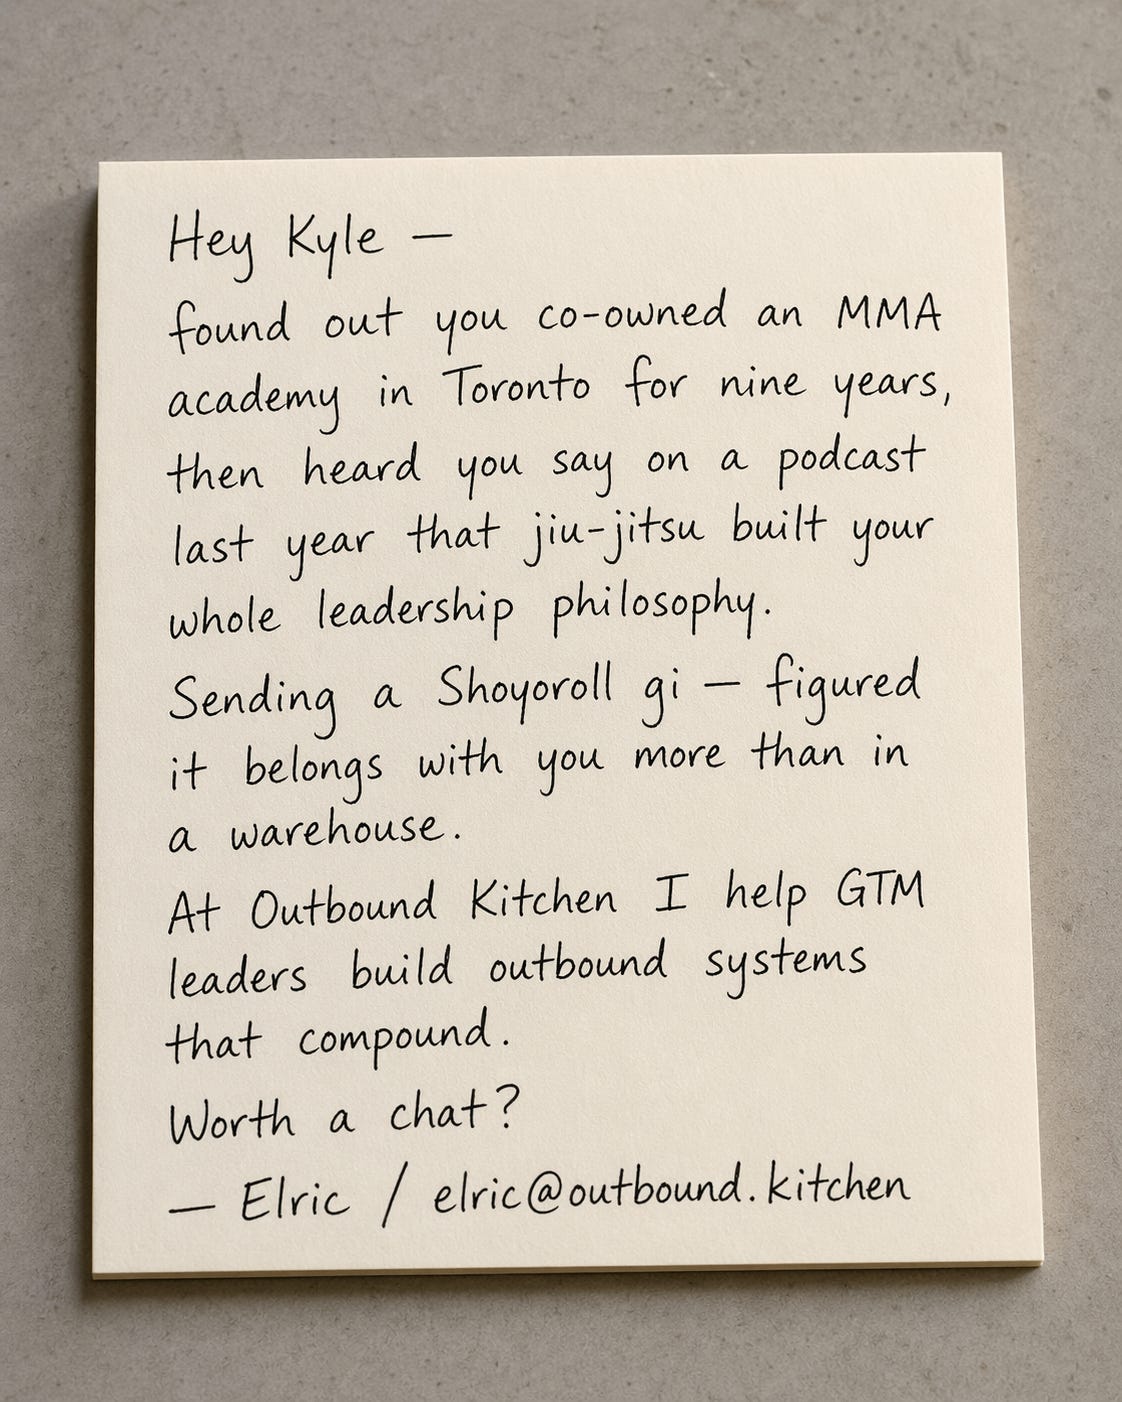 Hey Kyle —
found out you co-owned an MMA
academy in Toronto for nine years,
then heard you say on a podcast
last year that jiu-jitsu built your
whole leadership philosophy.
Sending a Shoyoroll gi — figured
it belongs with you more than in
a warehouse.
At Outbound Kitchen I help GTM
leaders build outbound systems
that compound.
Worth a chat?
— Elric / elric@outbound.kitchen